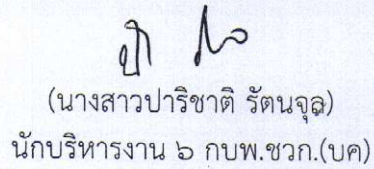 (นางสาวปาริชาติ รัตนจุล)
นักบริหารงาน ๖ กบพ.ชวก.(บค)